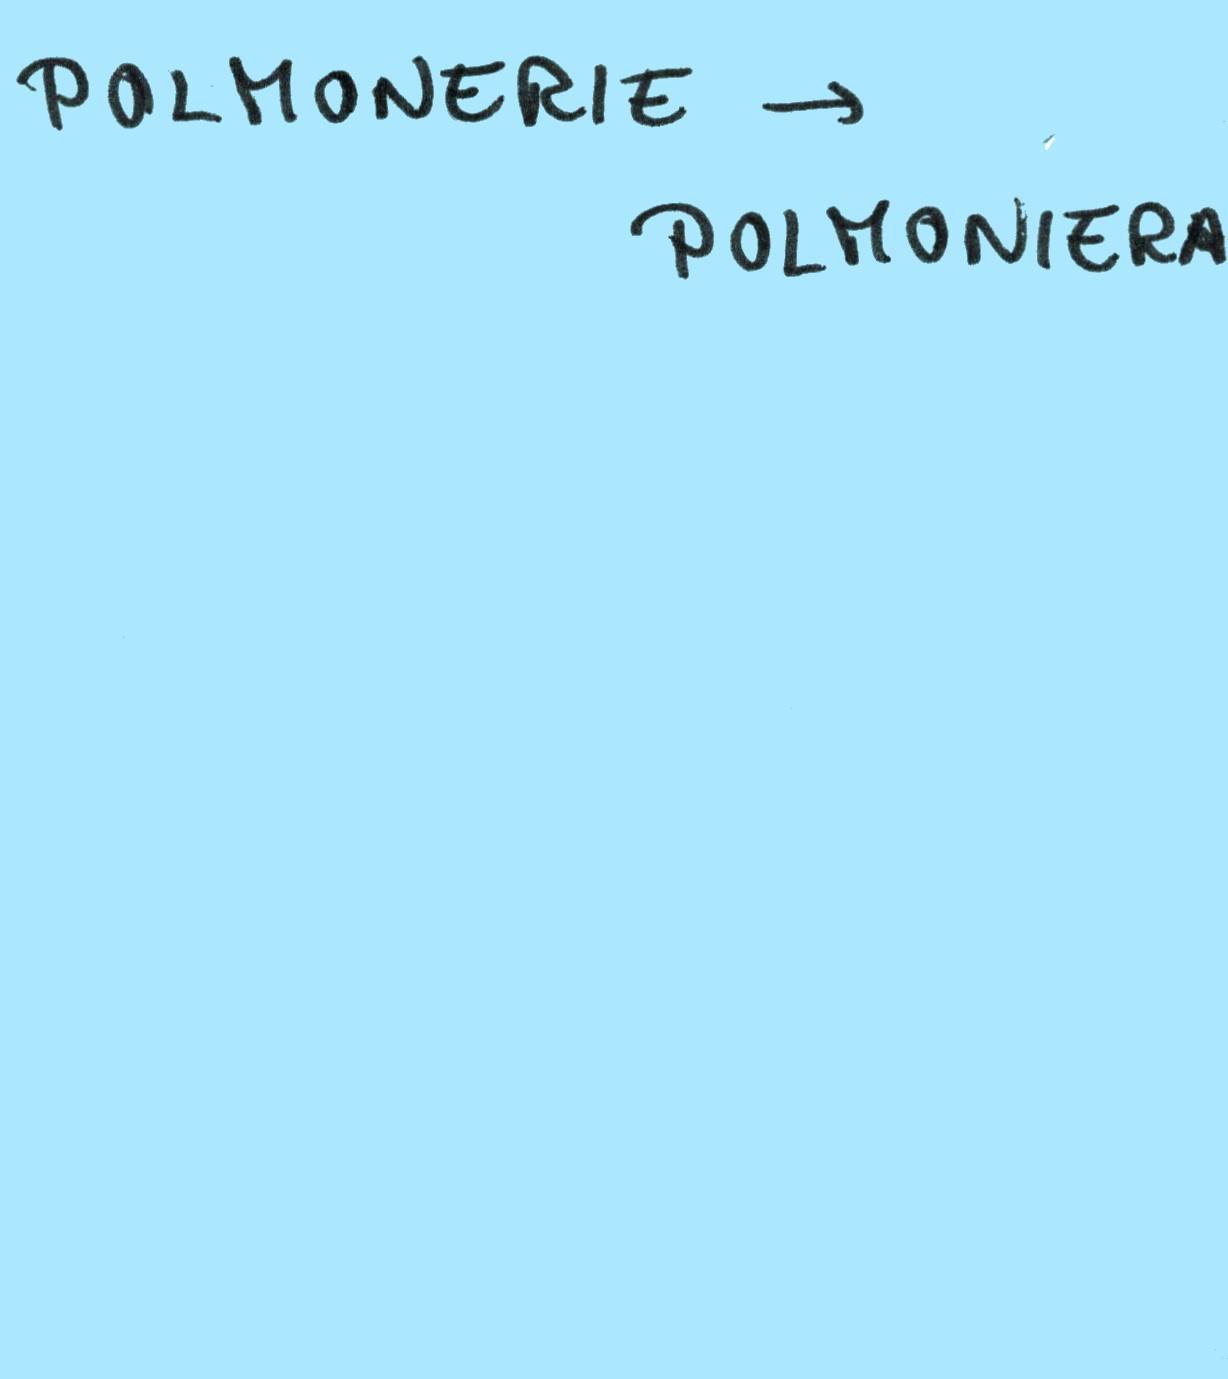 POLMONERIE →
POLMONIERA